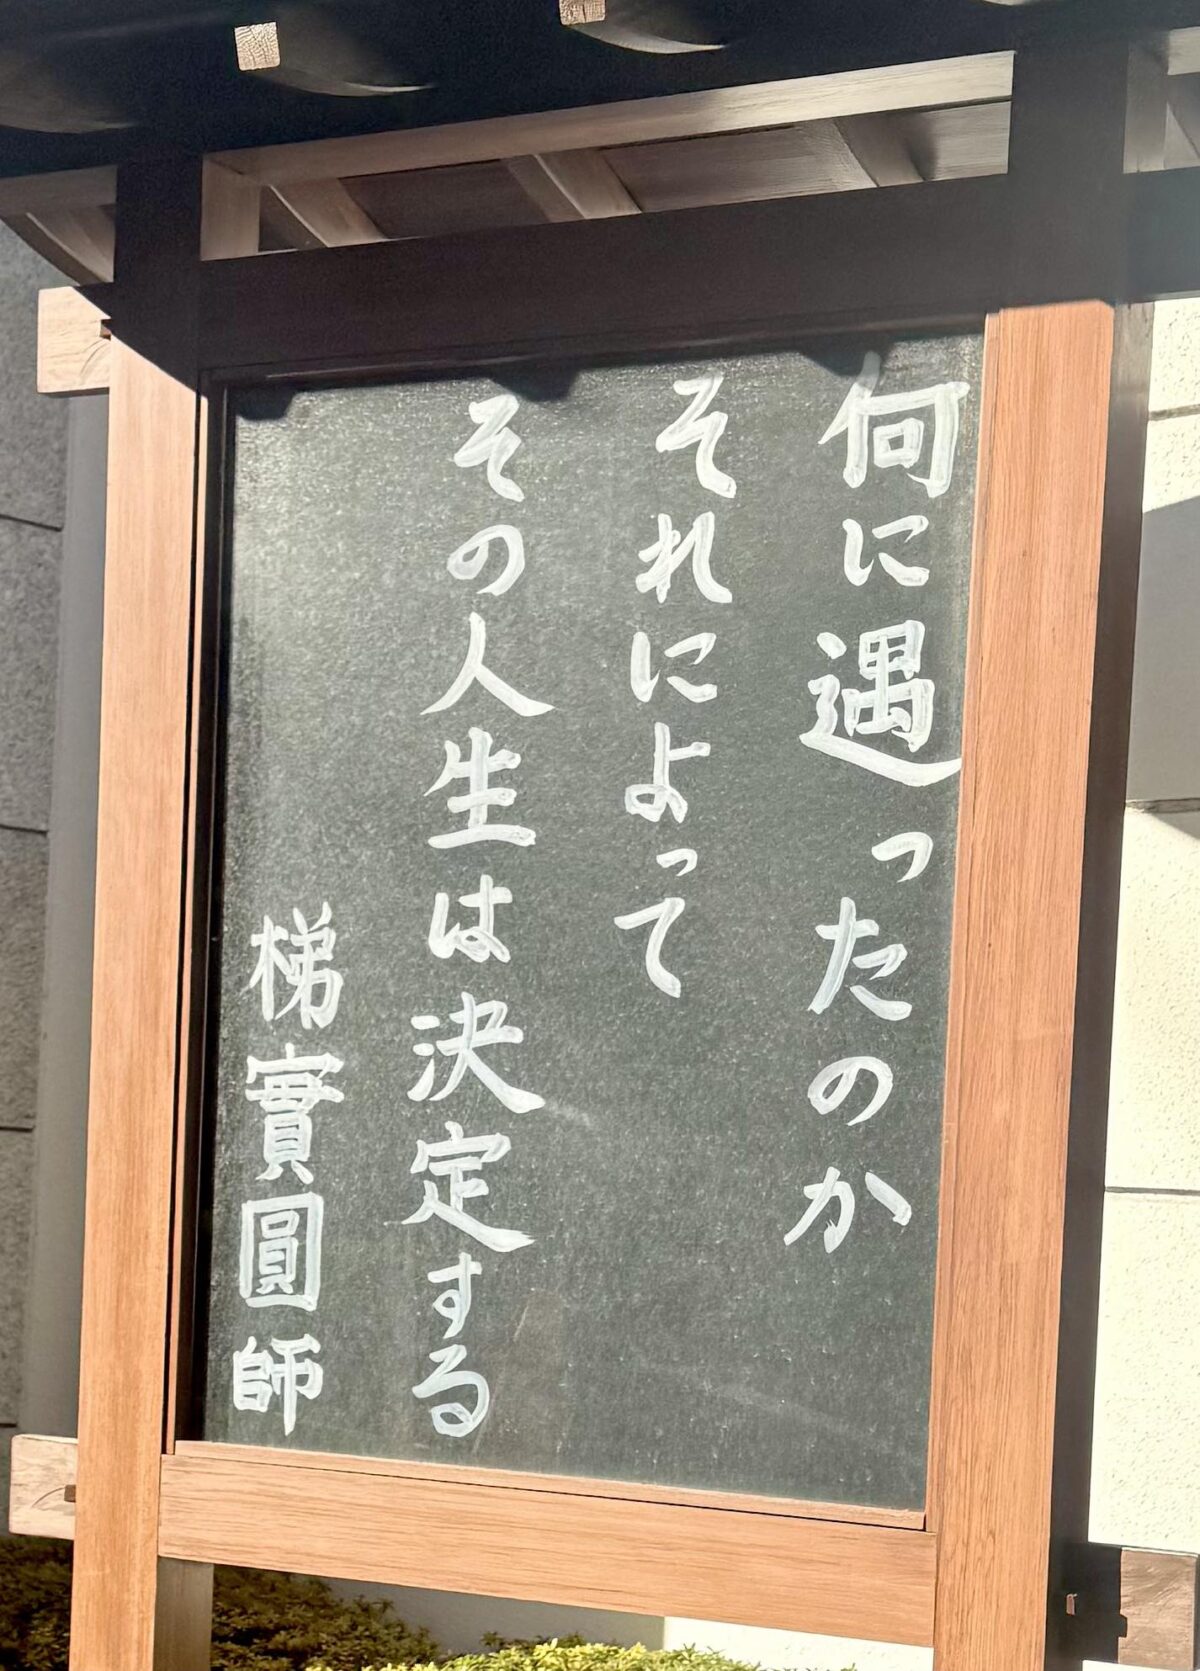 何に遇ったのか
それによって
その人生は決定する
梯實圓師